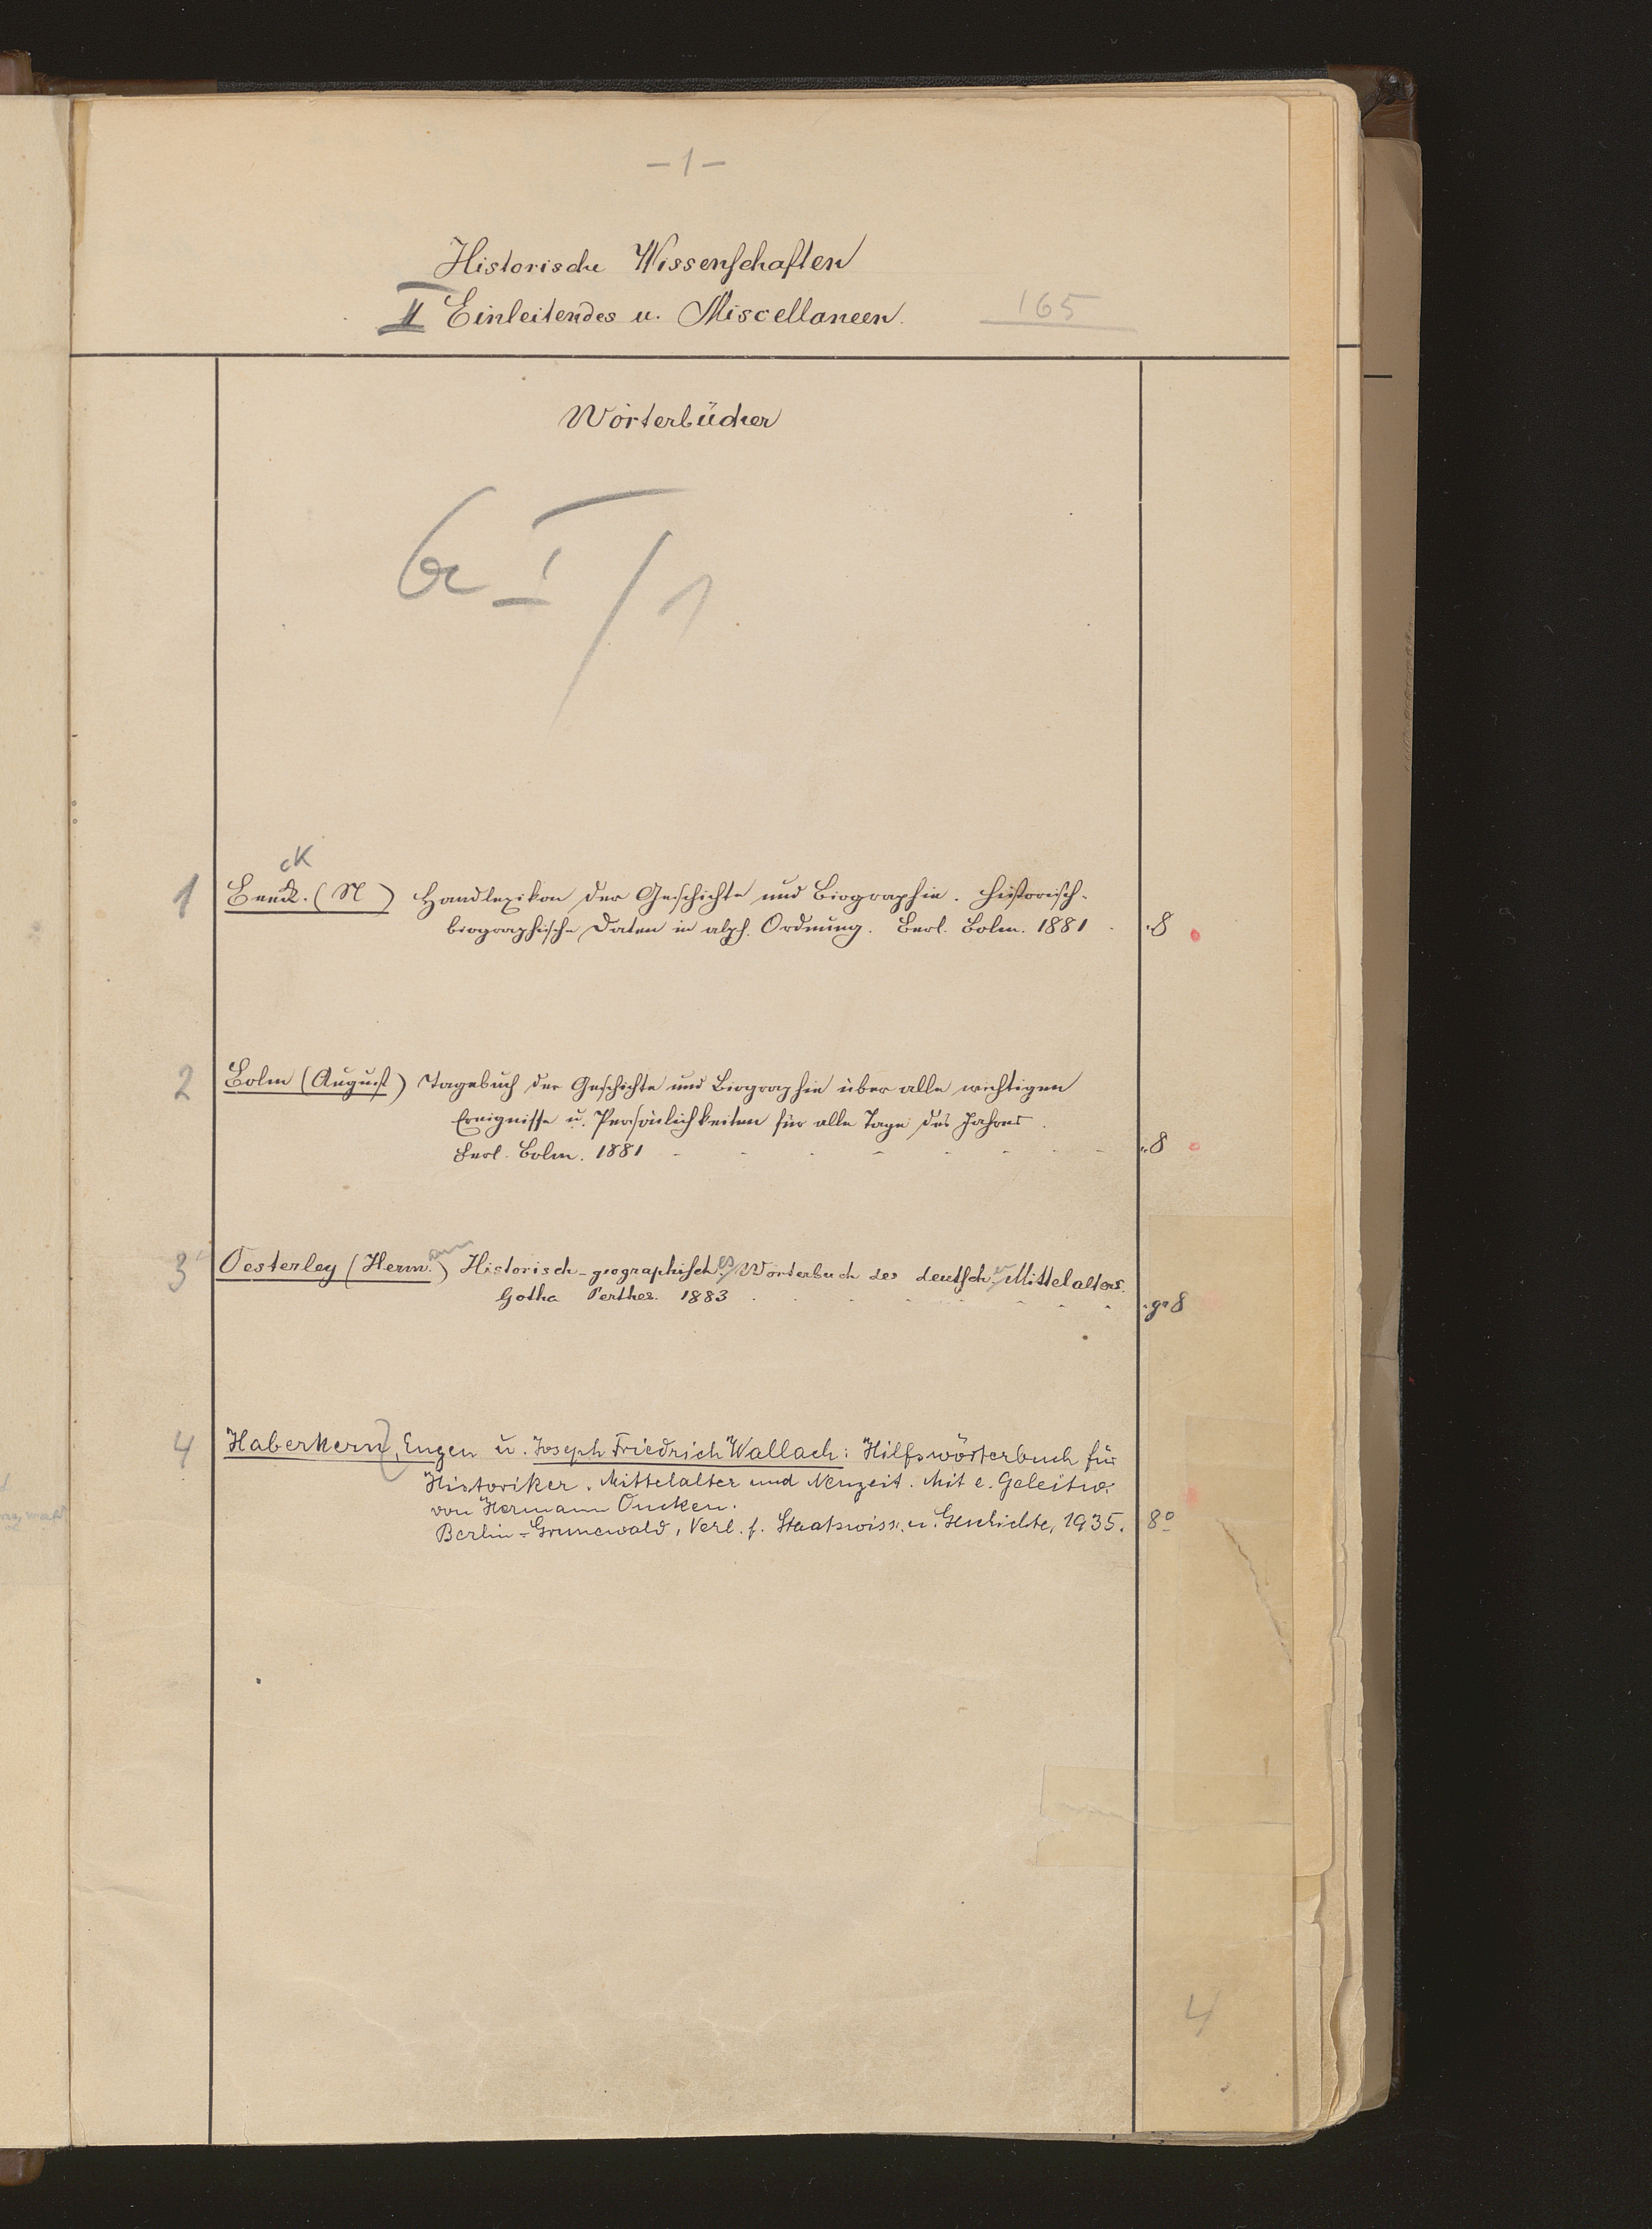 – 1 –
Historische Wissenschaften
II Einleitendes u. Miscellaneen. 165
Wörterbücher
Gc I / 1
ck
1 (N) Handlexikon der Geschichte und Biographie. Historisch-
biographische Daten in alph. Ordnung. Berl. Bolm. 1881 8
2 Bolm (August) Tagebuch der Geschichte und Biographie über alle wichtigen
Ereignisse u. Persönlichkeiten für alle Tage des Jahres.
Berl. Bolm. 1881 8
3 Oesterley (Hermann) Historisch-geographisches Wörterbuch des deutschen Mittelalters.
Gotha Perthes. 1883 gr 8
4 Haberkern, Eugen u. Joseph Friedrich Wallach: Hilfswörterbuch für
Historiker. Mittelalter und Neuzeit. Mit e. Geleitw.
von Hermann Oncken.
Berlin-Grunewald, Verl. f. Staatswiss. u. Geschichte, 1935. 8º
4